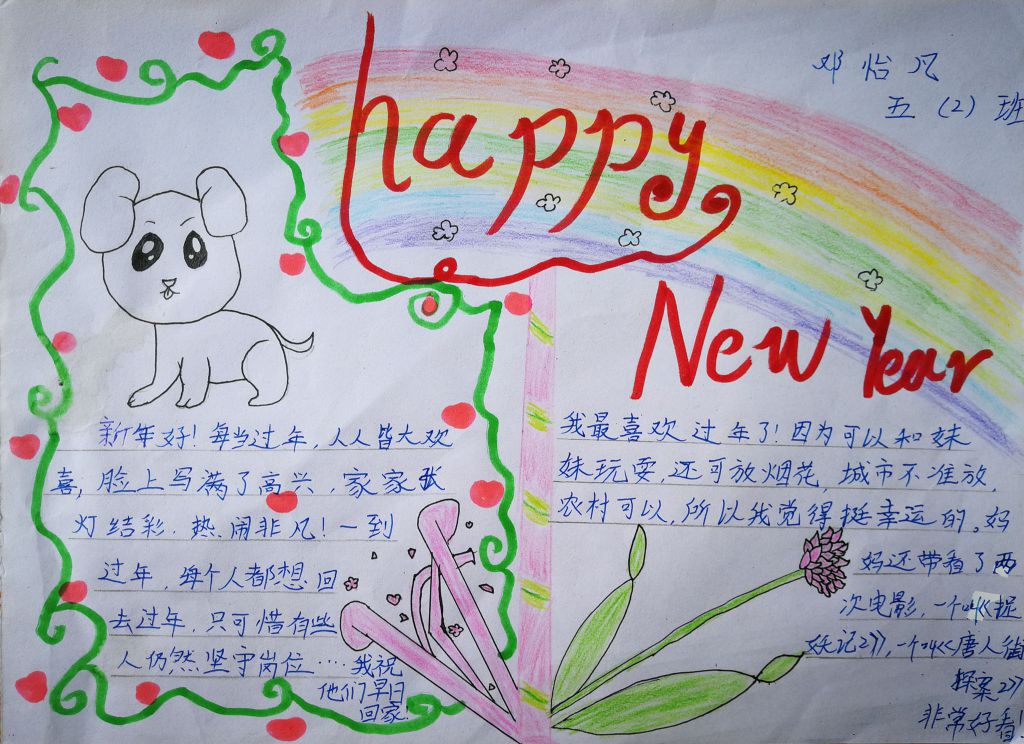 happy
New Year
邓怡凡
五(2)班
新年好!每当过年,人人皆大欢
喜,脸上写满了高兴,家家张
灯结彩.热闹非凡!一到
过年,每个人都想回
去过年,只可惜有些
人仍然坚守岗位····我祝
他们早日
回家!
我最喜欢过年了!因为可以和妹
妹玩耍,还可放烟花,城市不准放,
农村可以,所以我觉得挺幸运的。妈
妈还带看了两
次电影,一个叫《捉
妖记2》,一个叫《唐人街
探案2》
非常好看!